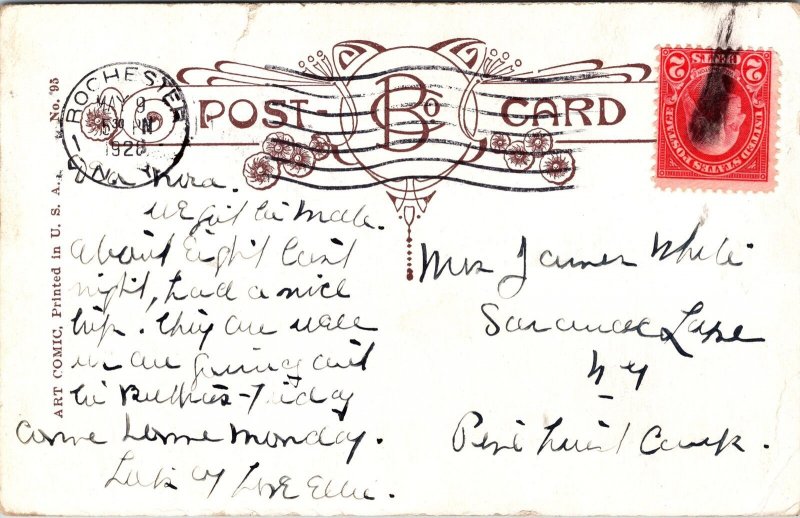 POST CARD
Bo
Co
No. '95
ART COMIC, Printed in U. S. A.
ROCHESTER
MAY 9
530 PM
192
N.
UNITED STATES POSTAGE
2 CENTS 2
Dear Nora.
We got to
about Eight last
night, had a nice
trip. They are well
we are going out
to Friday
Come home Monday.
Lots of Love Ellie.
Mrs James White
Saranac Lake
N Y
Camp.